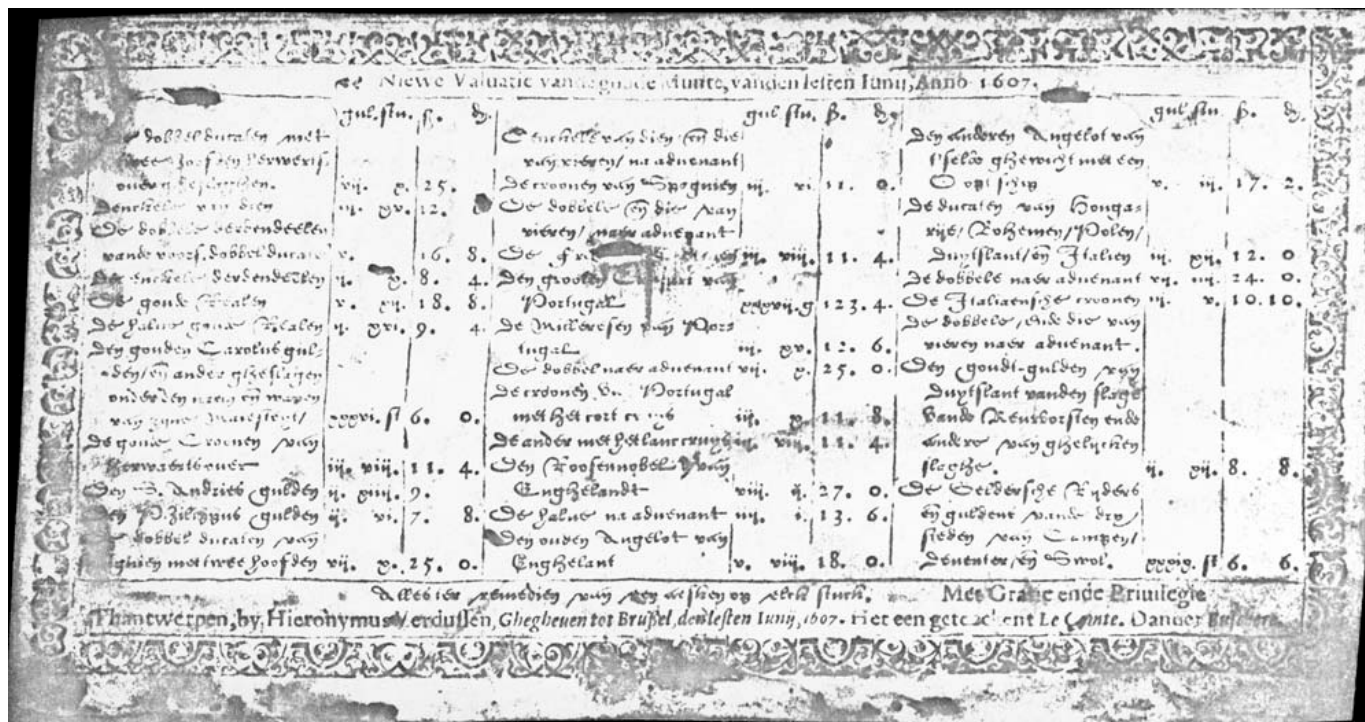 Niewe Valuatie vande goude Munte, vanden lesten Iunij, Anno 1607.
gul. stu. ß. đ.
dobbel ducaten met
twee
vij. x. 25.
Denckele van dien iij. xv. 12.
De dobbele derdendeelen
vande voors. dobbel ducate v. 16. 8.
De enckele derdendeelen ij. x. 8. 4.
De goude Realen v. xij. 18. 8.
De halve goude Realen ij. xvi. 9. 4.
Den gouden Carolus gul-
den en ander gheslagen
onder den naem en wapen
van zijne Maiesteyt xxxvi. st 6. 0.
De goude Croonen van
herwaertsover iij. viij. 11. 4.
Den S. Andries gulden ij. xiiij. 9.
Den Philippus gulden ij. vi. 7. 8.
dobbel ducaten van
met twee hoofden vij. x. 25. 0.
gul stu. ß. đ.
Denckele van dien en die
van vieren / na advenant
De croonen van Spagnien iij. vi. 11. 0.
De dobbele en die van
vieren / naer advenant
De iij. viij. 11. 4.
Den grooten van
Portugal xxxvij. g 123. 4.
De Millereesen van Por-
tugal iij. xv. 12. 6.
De dobbel naer advenant vij. x. 25. 0.
De croonen Portugal
met het cort cruys iij. x. 11. 8.
De ander met het lanc cruys iij. viij. 11. 4.
Den Roosennobel van
Enghelandt viij. ij. 27. 0.
De halve na advenant iiij. i. 13. 6.
Den ouden Angelot van
Enghelant v. viij. 18. 0.
gul stu. ß. đ.
Den anderen Angelot van
t'selve ghewicht met een
O opt schip v. iij. 17. 2.
De ducaten van Honga-
rije / Bohemen / Polen /
Duytslant / en Italien iij. xij. 12. 0
De dobbele naer advenant vij. iiij. 24. 0.
De Italiaensche croonen iij. v. 10. 10.
De dobbele / ende die van
vieren naer advenant.
Den goudt-gulden van
Duytslant vanden slage
vande Keurvorsten ende
andere van ghelijcken
slaghe. ij. xij. 8. 8.
De Geldersche Ryders
en guldens vande dry
steden van Campen /
Deventer / en Swol. xxxix. st 6. 6.
Alles ter remedien van een aesken op elck stuck. Met Gratie ende Privilegie
Thantwerpen, by Hieronymus Verdussen, Ghegheven tot Brussel, den lesten Iunij, 1607. Het een getekent Le Comte. Dander Busschere